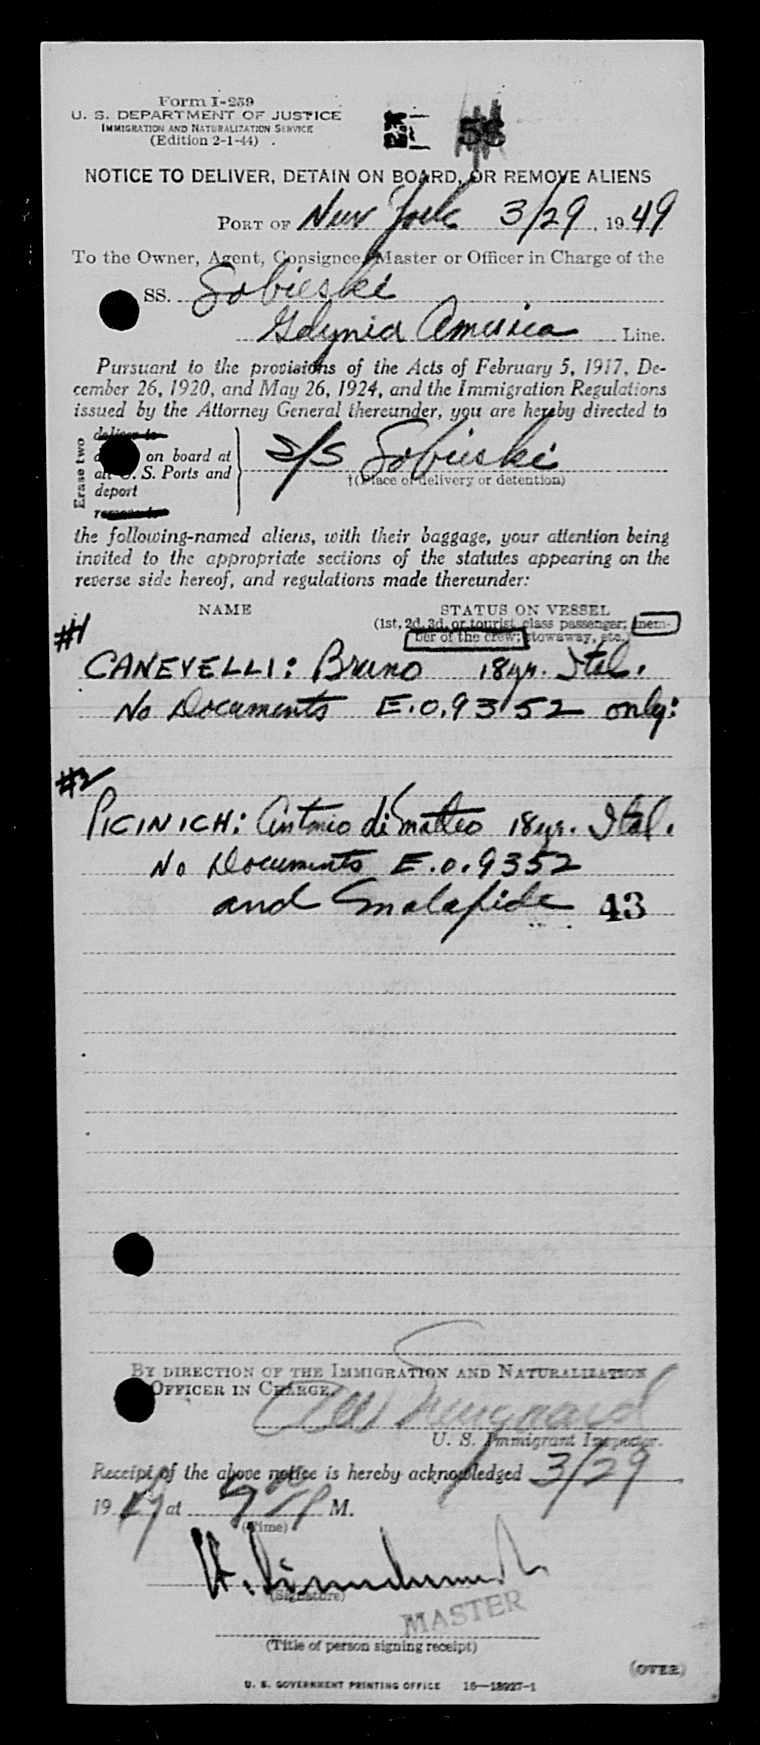 Form I-259
U. S. DEPARTMENT OF JUSTICE
IMMIGRATION AND NATURALIZATION SERVICE
(Edition 2-1-44)
NOTICE TO DELIVER, DETAIN ON BOARD, OR REMOVE ALIENS
PORT OF New York 3/29, 1949
To the Owner, Agent, Consignee, Master or Officer in Charge of the
SS. Sobieski
Gdynia America Line.
Pursuant to the provisions of the Acts of February 5, 1917, De-
cember 26, 1920, and May 26, 1924, and the Immigration Regulations
issued by the Attorney General thereunder, you are hereby directed to
Erase two
deliver to
on board at
all U. S. Ports and
deport
remove to
S/S Sobieski
†(Place of delivery or detention)
the following-named aliens, with their baggage, your attention being
invited to the appropriate sections of the statutes appearing on the
reverse side hereof, and regulations made thereunder:
NAME STATUS ON VESSEL
(1st, 2d, 3d, or tourist class passenger; mem-
ber of the crew; stowaway, etc.)
#1
CANEVELLI: Bruno 18yr. Ital.
No Documents E.O.9352 only:
#2
PICINICH: Antonio di Matteo 18yr. Ital.
No Documents E.O.9352
and malafide 43
BY DIRECTION OF THE IMMIGRATION AND NATURALIZATION
OFFICER IN CHARGE.
U. S. Immigrant Inspector.
Receipt of the above notice is hereby acknowledged 3/29
1949 at 9 P M.
(Time)
(Signature)
MASTER
(Title of person signing receipt)
(OVER)
U. S. GOVERNMENT PRINTING OFFICE 16—18927-1